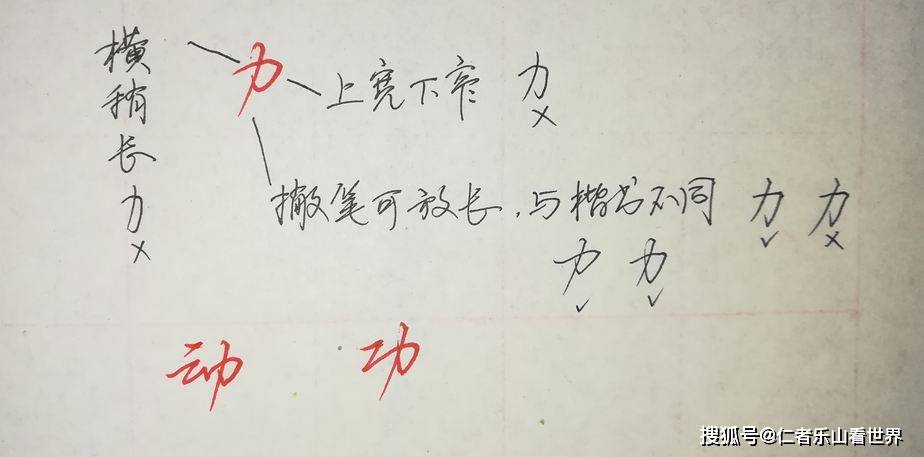 横稍长力
×
力
上宽下窄 力
×
撇笔可放长,与楷书不同 力 力
✓ ×
力 力
✓ ✓
动 功
搜狐号@仁者乐山看世界